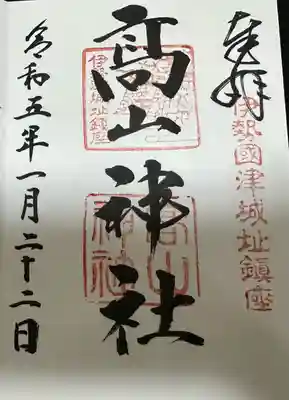 奉拝
伊勢國津城址鎮座
高山神社
令和五年一月二十二日